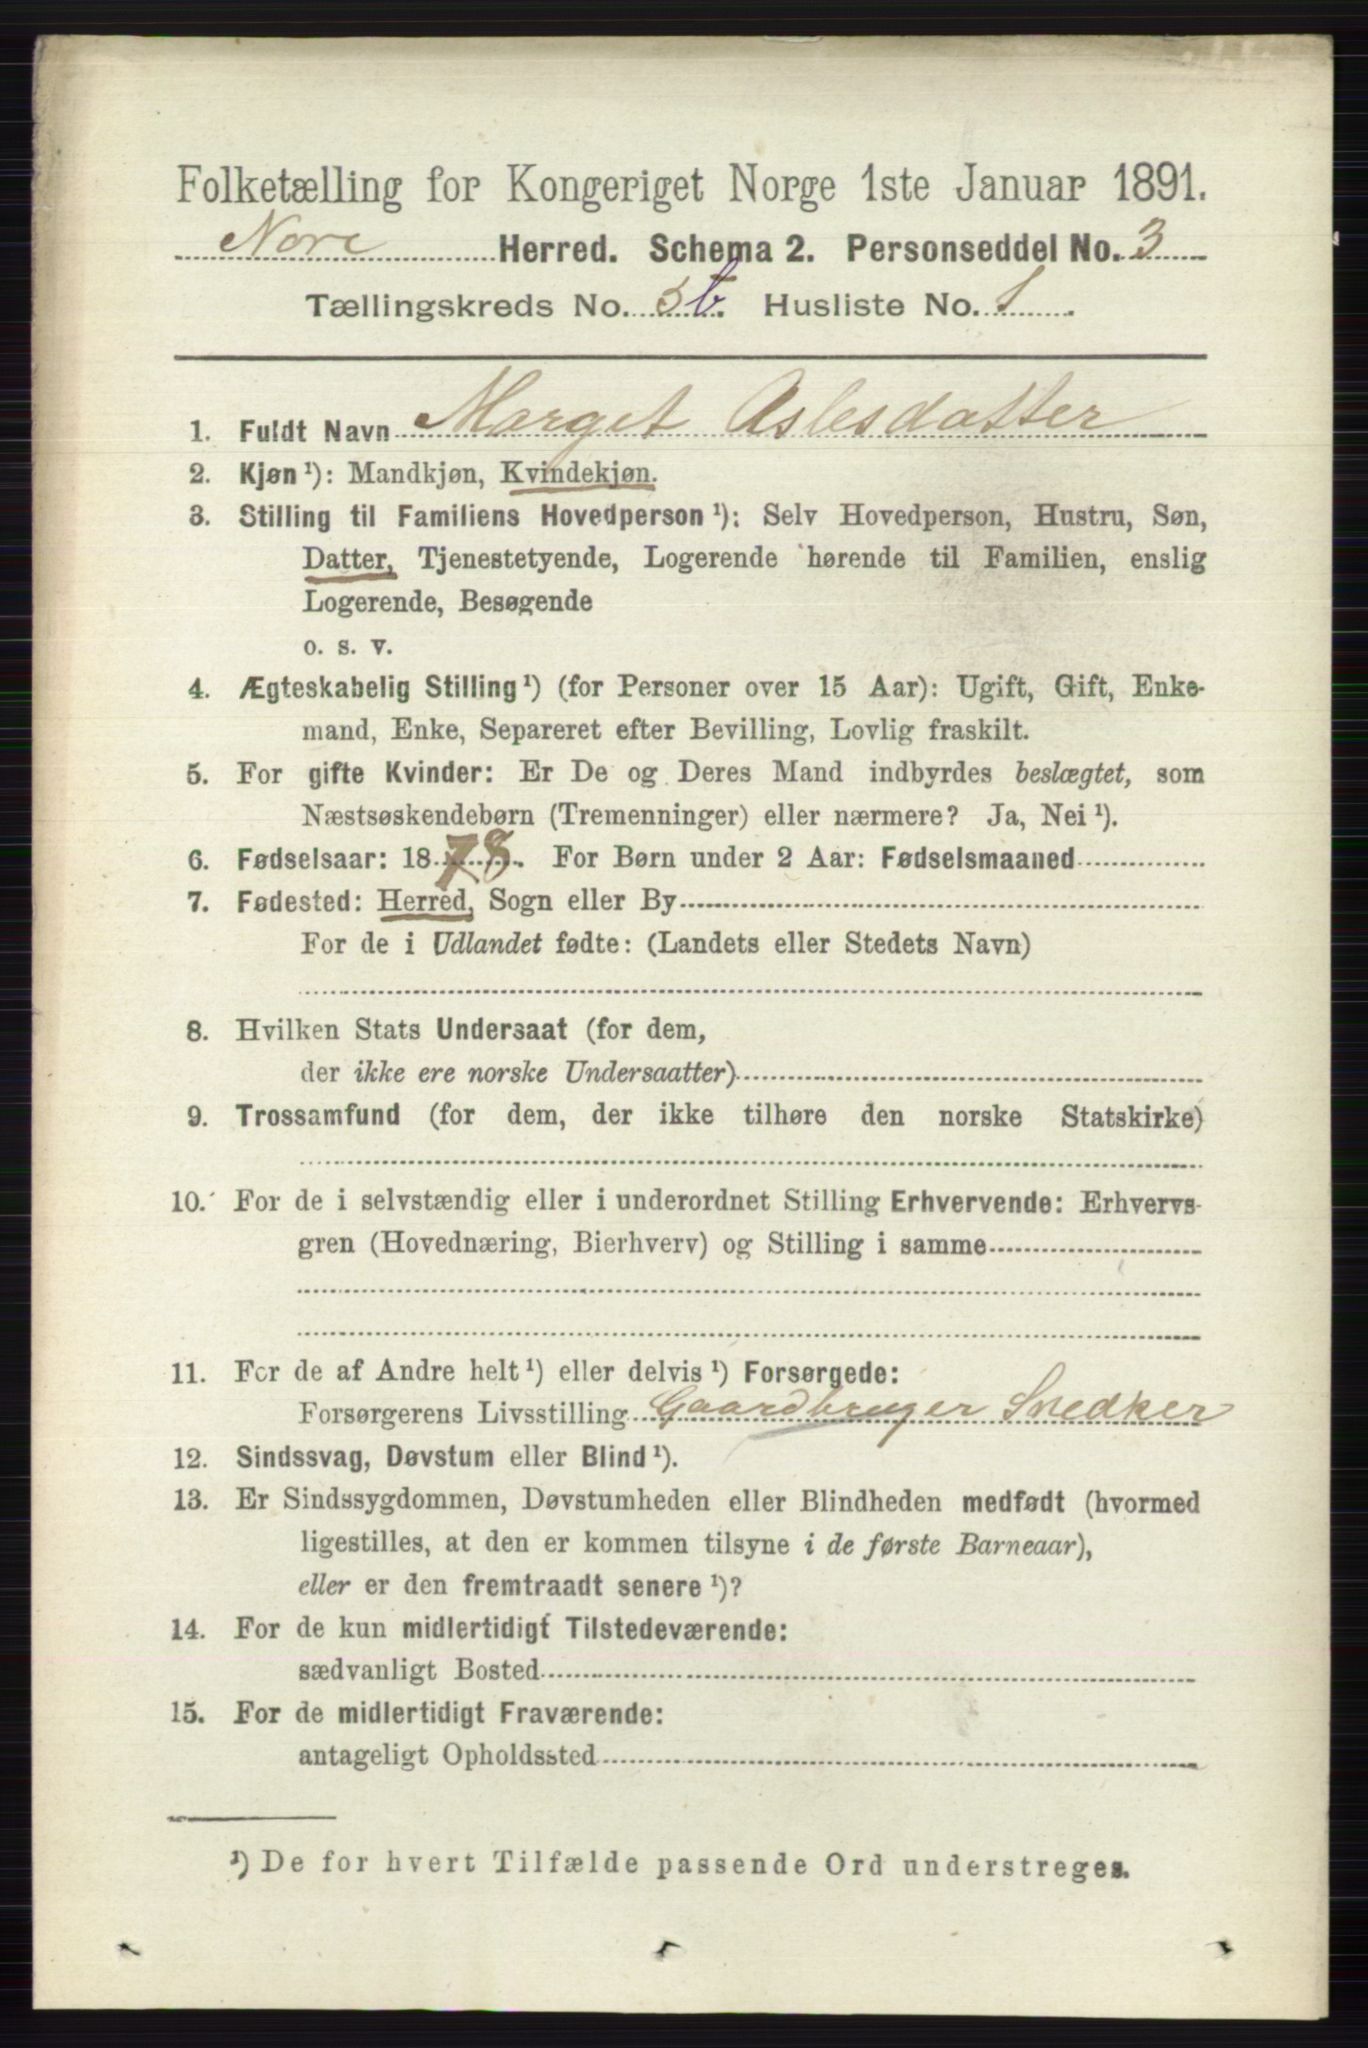 Folketælling for Kongeriget Norge 1ste Januar 1891.
Nore Herred. Schema 2. Personseddel No. 3
Tællingskreds No. 5b. Husliste No. 1.
1. Fuldt Navn Marget Aslesdatter
2. Kjøn ¹): Mandkjøn, Kvindekjøn.
3. Stilling til Familiens Hovedperson ¹): Selv Hovedperson, Hustru, Søn,
Datter, Tjenestetyende, Logerende hørende til Familien, enslig
Logerende, Besøgende
o. s. v.
4. Ægteskabelig Stilling ¹) (for Personer over 15 Aar): Ugift, Gift, Enke-
mand, Enke, Separeret efter Bevilling, Lovlig fraskilt.
5. For gifte Kvinder: Er De og Deres Mand indbyrdes beslægtet, som
Næstsøskendebørn (Tremenninger) eller nærmere? Ja, Nei ¹).
6. Fødselsaar: 1878. For Børn under 2 Aar: Fødselsmaaned
7. Fødested: Herred, Sogn eller By
For de i Udlandet fødte: (Landets eller Stedets Navn)
8. Hvilken Stats Undersaat (for dem,
der ikke ere norske Undersaatter)
9. Trossamfund (for dem, der ikke tilhøre den norske Statskirke)
10. For de i selvstændig eller i underordnet Stilling Erhvervende: Erhvervs-
gren (Hovednæring, Bierhverv) og Stilling i samme
11. For de af Andre helt ¹) eller delvis ¹) Forsørgede:
Forsørgerens Livsstilling Gaardbruger Snedker
12. Sindssvag, Døvstum eller Blind ¹).
13. Er Sindssygdommen, Døvstumheden eller Blindheden medfødt (hvormed
ligestilles, at den er kommen tilsyne i de første Barneaar),
eller er den fremtraadt senere ¹)?
14. For de kun midlertidigt Tilstedeværende:
sædvanligt Bosted
15. For de midlertidigt Fraværende:
antageligt Opholdssted
¹) De for hvert Tilfælde passende Ord understreges.